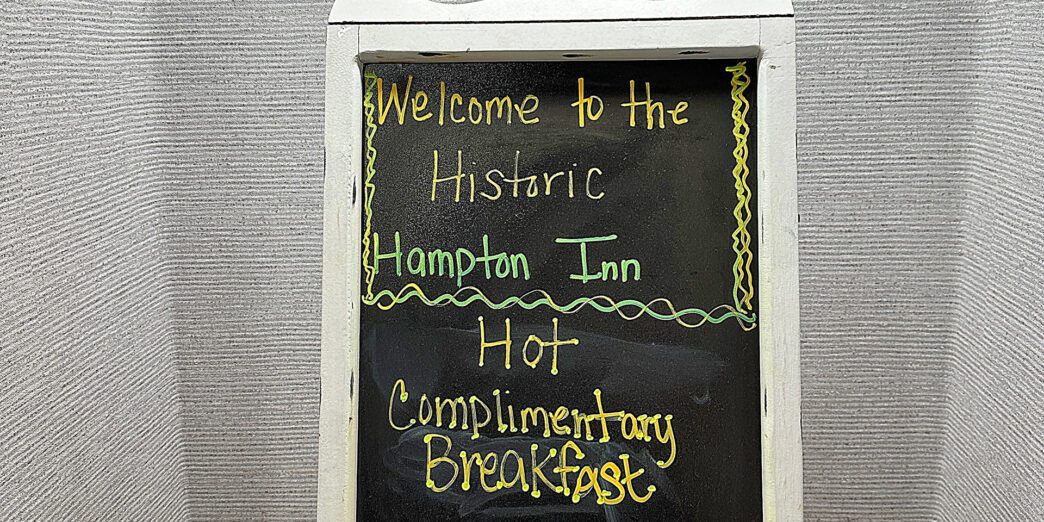 Welcome to the
Historic
Hampton Inn
Hot
Complimentary
Breakfast